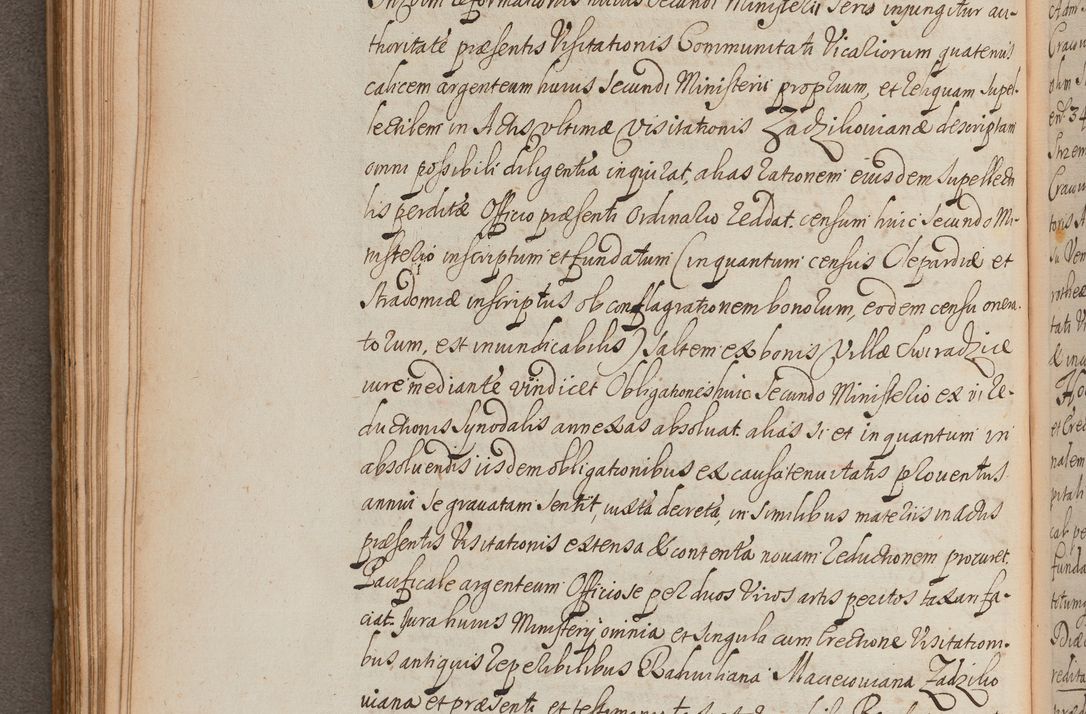 In vim reformationis huius secundi Ministerii serio injungitur au-
thoritate præsentis Visitationis Communitati Vicariorum quatenus
calicem argenteum huius secundi Ministerii proprium, et reliquam supel-
lectilem in Actis ultimæ Visitationis Zadzikovianæ descriptam
omni possibili diligentia inquirat, alias rationem eiusdem supellecti
lis perditæ Officio præsenti Ordinario reddat. censum huic secundo Mi-
nisterio inscriptum et fundatum (in quantum census Clepardiæ et
Stradomiæ inscriptus ob conflagrationem bonorum, eodem censu onera-
torum, est invindicabilis) saltem ex bonis Villæ Swiradzice
iure mediante vindicet Obligationes huic secundo Ministerio ex vi re-
ductionis synodalis annexas absolvat. alias si et in quantum in
absolvendis iisdem obligationibus ex causa tenuitatis proventus
annui se gravatam sentit, iuxta decreta, in similibus materiis in actis
præsentis Visitationis extensa & contenta novam reductionem procuret.
Pacificale argenteum Officiose per duos viros artis peritos taxari fa-
ciat. Jura huius Ministerij omnia et singula cum Erectione Visitationi-
bus antiquis reperibilibus Maciejoviana Zadziko
viana et præsenti et